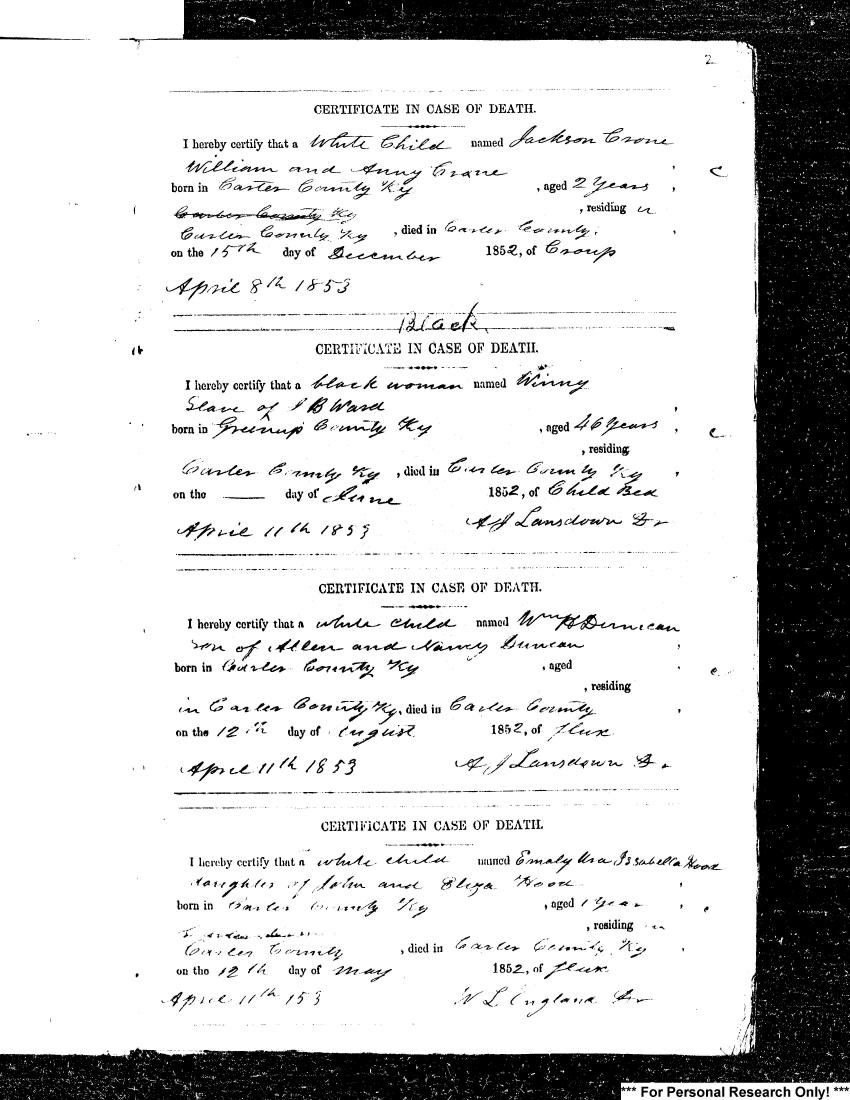 2
CERTIFICATE IN CASE OF DEATH.
I hereby certify that a White Child named Jackson Crone
William and Anny Crane
born in Carter County Ky , aged 2 Years ,
Carter County Ky , residing in
Carter County Ky , died in Carter County.
on the 15th day of December 1852, of Croup
April 8th 1853
Black
CERTIFICATE IN CASE OF DEATH.
I hereby certify that a black woman named Winny
Slave of J B Ward ,
born in Greenup County Ky , aged 46 Years ,
, residing
Carter County Ky , died in Carter County Ky ,
on the day of June 1852, of Child Bed
April 11th 1853 A J Lansdown
CERTIFICATE IN CASE OF DEATH.
I hereby certify that a white child named Wm H Dunican
son of Allen and Nancy Duncan ,
born in Carter County Ky , aged
, residing
in Carter County Ky, died in Carter County ,
on the 12th day of August 1852, of flux
April 11th 1853 A J Lansdown
CERTIFICATE IN CASE OF DEATH.
I hereby certify that a white child named Emaly Issabella Hood
daughter of John and Eliza Hood ,
born in Carter County Ky , aged 1 Year ,
, residing in
Carter County , died in Carter County Ky .
on the 12th day of May 1852, of flux
April 11th 153 W L England
*** For Personal Research Only! ***